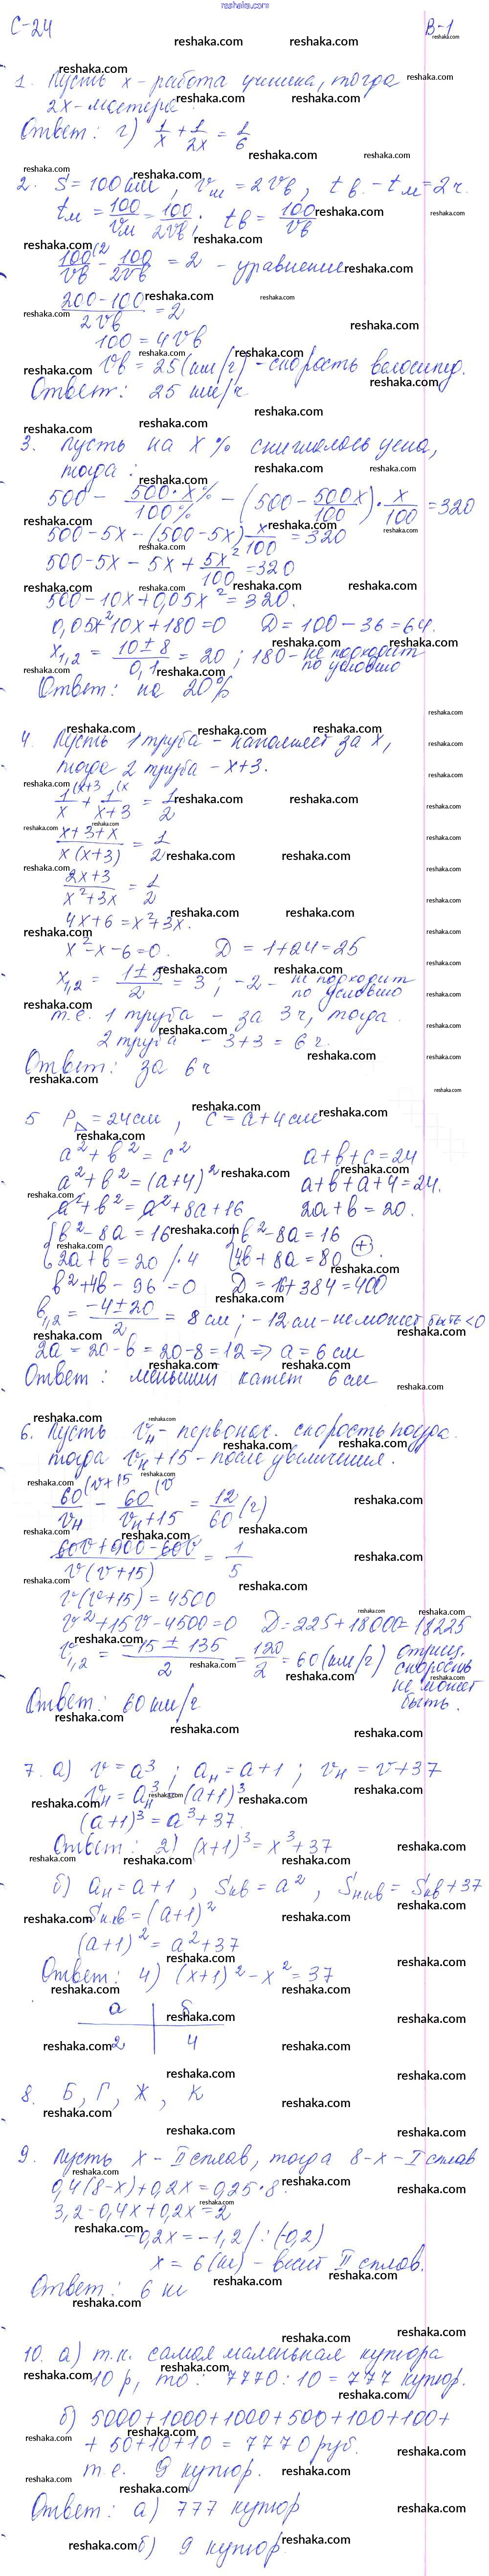 reshaka.com
С-24 В-1
1. Пусть x - работа ученика, тогда
2x - мастера.
Ответ: г) 1/x + 1/2x = 1/6
2. S = 100 км, vм = 2vв, tв - tм = 2 ч.
tм = 100/vм = 100/2vв; tв = 100/vв
100(2/vв - 100/2vв = 2 - уравнение
200-100/2vв = 2
100 = 4vв
vв = 25 (км/ч) - скорость велосипед.
Ответ: 25 км/ч
3. Пусть на x % снижалась цена,
тогда:
500 - 500·x%/100% - (500 - 500x/100)·x/100 = 320
500 - 5x - (500-5x) x/100 = 320
500 - 5x - 5x + 5x²/100 = 320
500 - 10x + 0,05x² = 320.
0,05x² 10x + 180 = 0 D = 100 - 36 = 64.
x1,2 = 10±8/0,1 = 20; 180 - не подходит
по условию
Ответ: на 20%
4. Пусть 1 труба - наполняет за x,
тогда 2 труба - x+3.
1(x+3/x + 1(x/x+3 = 1/2
x+3+x/x(x+3) = 1/2
2x+3/x²+3x = 1/2
4x+6 = x²+3x.
x²-x-6=0. D = 1+24 = 25
x1,2 = 1±5/2 = 3; -2 - не подходит
по условию
т.е. 1 труба - за 3ч, тогда
2 труба - 3+3 = 6 ч.
Ответ: за 6 ч
5 P△ = 24см, c = a+4см
a² + b² = c² a+b+c = 24
a² + b² = (a+4)² a+b+a+4 = 24.
a² + b² = a² + 8a + 16 2a+b = 20.
{b² - 8a = 16 {b² - 8a = 16
{2a+b = 20 /·4 {4b + 8a = 80 (+)
b² + 4b - 96 = 0 D = 16+384 = 400
b1,2 = -4±20/2 = 8 см; -12 см - не может быть <0
2a = 20-b = 20-8 = 12 => a = 6 см
Ответ: меньший катет 6 см
6. Пусть vн - первонач. скорость поезда.
тогда vн + 15 - после увеличения.
60(v+15/vн - 60(v/vн+15 = 12/60 (ч)
60v+900-60v/v(v+15) = 1/5
v(v+15) = 4500
v² + 15v - 4500 = 0 D = 225 + 18000 = 18225
v1,2 = -15 ± 135/2 = 120/2 = 60 (км/ч) отриц.
скорость
не может
быть.
Ответ: 60 км/ч
7. а) v = a³; aн = a+1; vн = v+37
vн = aн³ = (a+1)³
(a+1)³ = a³+37.
Ответ: 2) (x+1)³ = x³+37
б) aн = a+1, Sкв = a², Sн.кв = Sкв + 37
Sн.кв = (a+1)²
(a+1)² = a²+37
Ответ: 4) (x+1)² - x² = 37
а б
2 4
8. Б, Г, Ж, К
9. Пусть x - II сплав, тогда 8-x - I сплав
0,4(8-x)+0,2x = 0,25·8.
3,2-0,4x+0,2x = 2
-0,2x = -1,2 /:(-0,2)
x = 6 (кг) - весит II сплав.
Ответ: 6 кг
10. а) т.к. самая маленькая купюра
10 р, то: 7770:10 = 777 купюр.
б) 5000+1000+1000+500+100+100+
+ 50+10+10 = 7770 руб.
т.е. 9 купюр.
Ответ: а) 777 купюр
б) 9 купюр